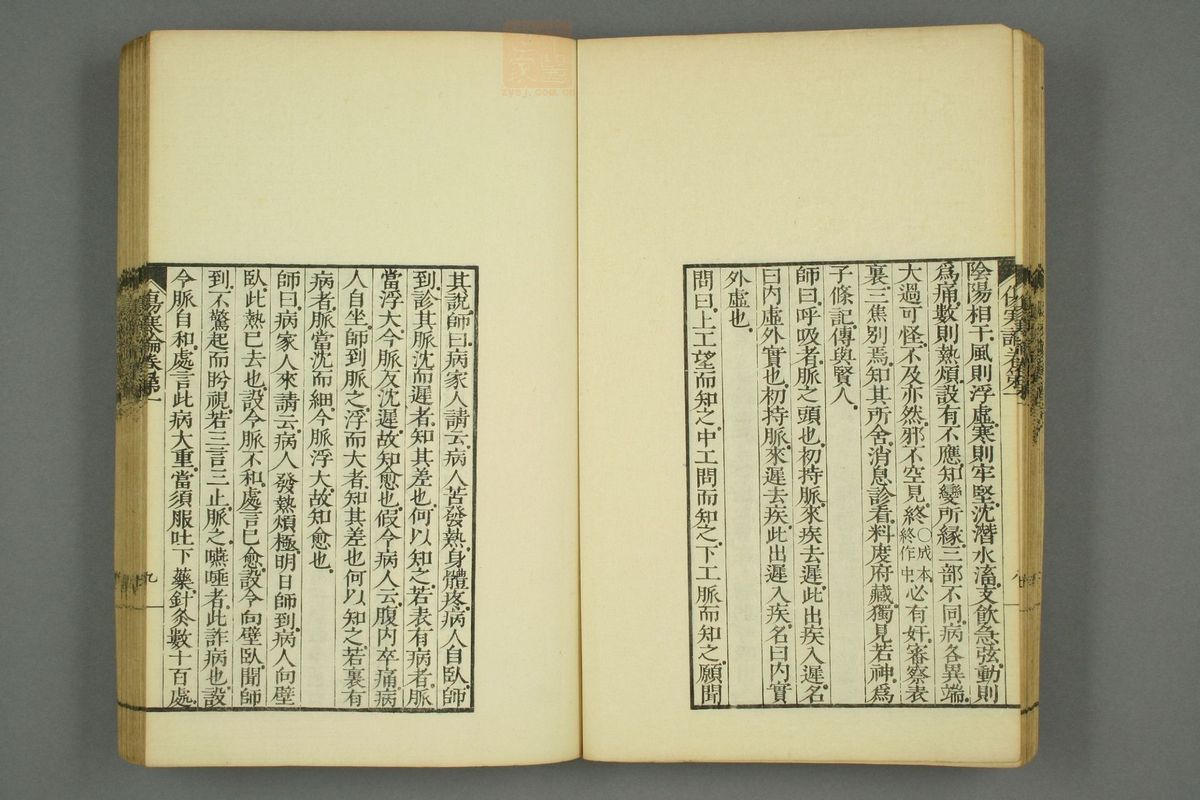 陰陽相干。風則浮虛。寒則牢堅。沈潛水滀。支飲急弦。動則
爲痛。數則熱煩。設有不應。知變所緣。三部不同。病各異端。
大過可怪。不及亦然。邪不空見。終〇成本終作中必有奸。審察表
裏。三焦別焉。知其所舍。消息診看。料度府藏。獨見若神。爲
子條記。傳與賢人。
師曰。呼吸者。脈之頭也。初持脈。來疾去遲。此出疾入遲。名
曰內虛外實也。初持脈。來遲去疾。此出遲入疾。名曰內實
外虛也。
問曰。上工望而知之。中工問而知之。下工脈而知之。願聞
其說。師曰。病家人請云。病人苦發熱。身體疼。病人自臥。師
到。診其脈。沈而遲者。知其差也。何以知之。若表有病者。脈
當浮大。今脈反沈遲。故知愈也。假令病人云。腹內卒痛。病
人自坐。師到脈之。浮而大者。知其差也。何以知之。若裏有
病者。脈當沈而細。今脈浮大。故知愈也。
師曰。病家人來請云。病人發熱煩極。明日師到。病人向壁
臥。此熱已去也。設令脈不和。處言已愈。設令向壁臥。聞師
到。不驚起而盻視。若三言三止。脈之嚥唾者。此詐病也。設
令脈自和。處言此病大重。當須服吐下藥。針灸數十百處。
傷寒論卷第一
九
zysj.com.cn